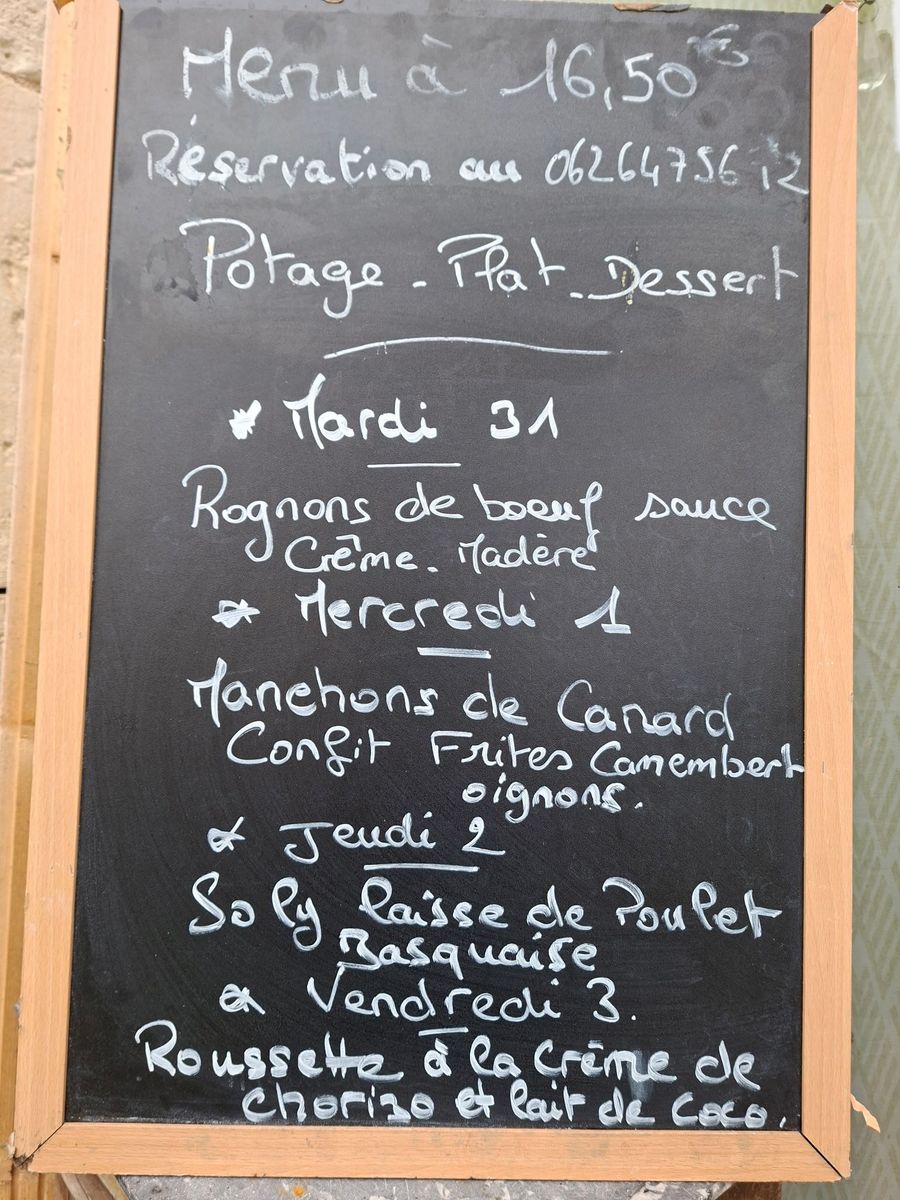 Menu à 16,50 €
Réservation au 0626475612
Potage - Plat - Dessert
* Mardi 31
Rognons de boeuf sauce
Crême - Madère
* Mercredi 1
Manchons de Canard
Confit Frites Camembert
oignons.
* Jeudi 2
So ly laisse de Poulet
Basquaise
* Vendredi 3.
Roussette à la Crême de
chorizo et lait de coco.